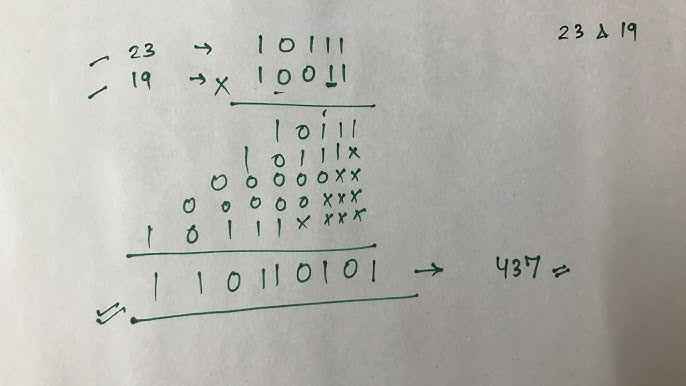 23 & 19
23 → 10111
19 → × 10011
10111
10111×
00000××
00000×××
10111××××
110110101 → 437